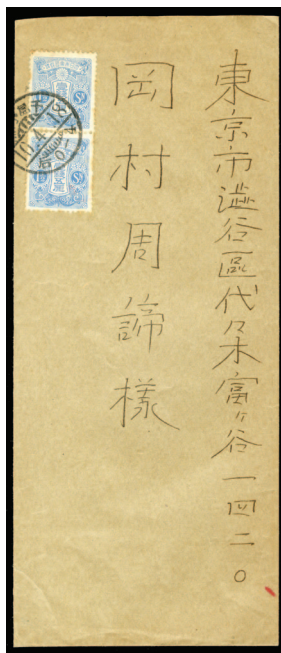 東京市澁谷區代々木富ヶ谷一四二〇
岡村周諦樣